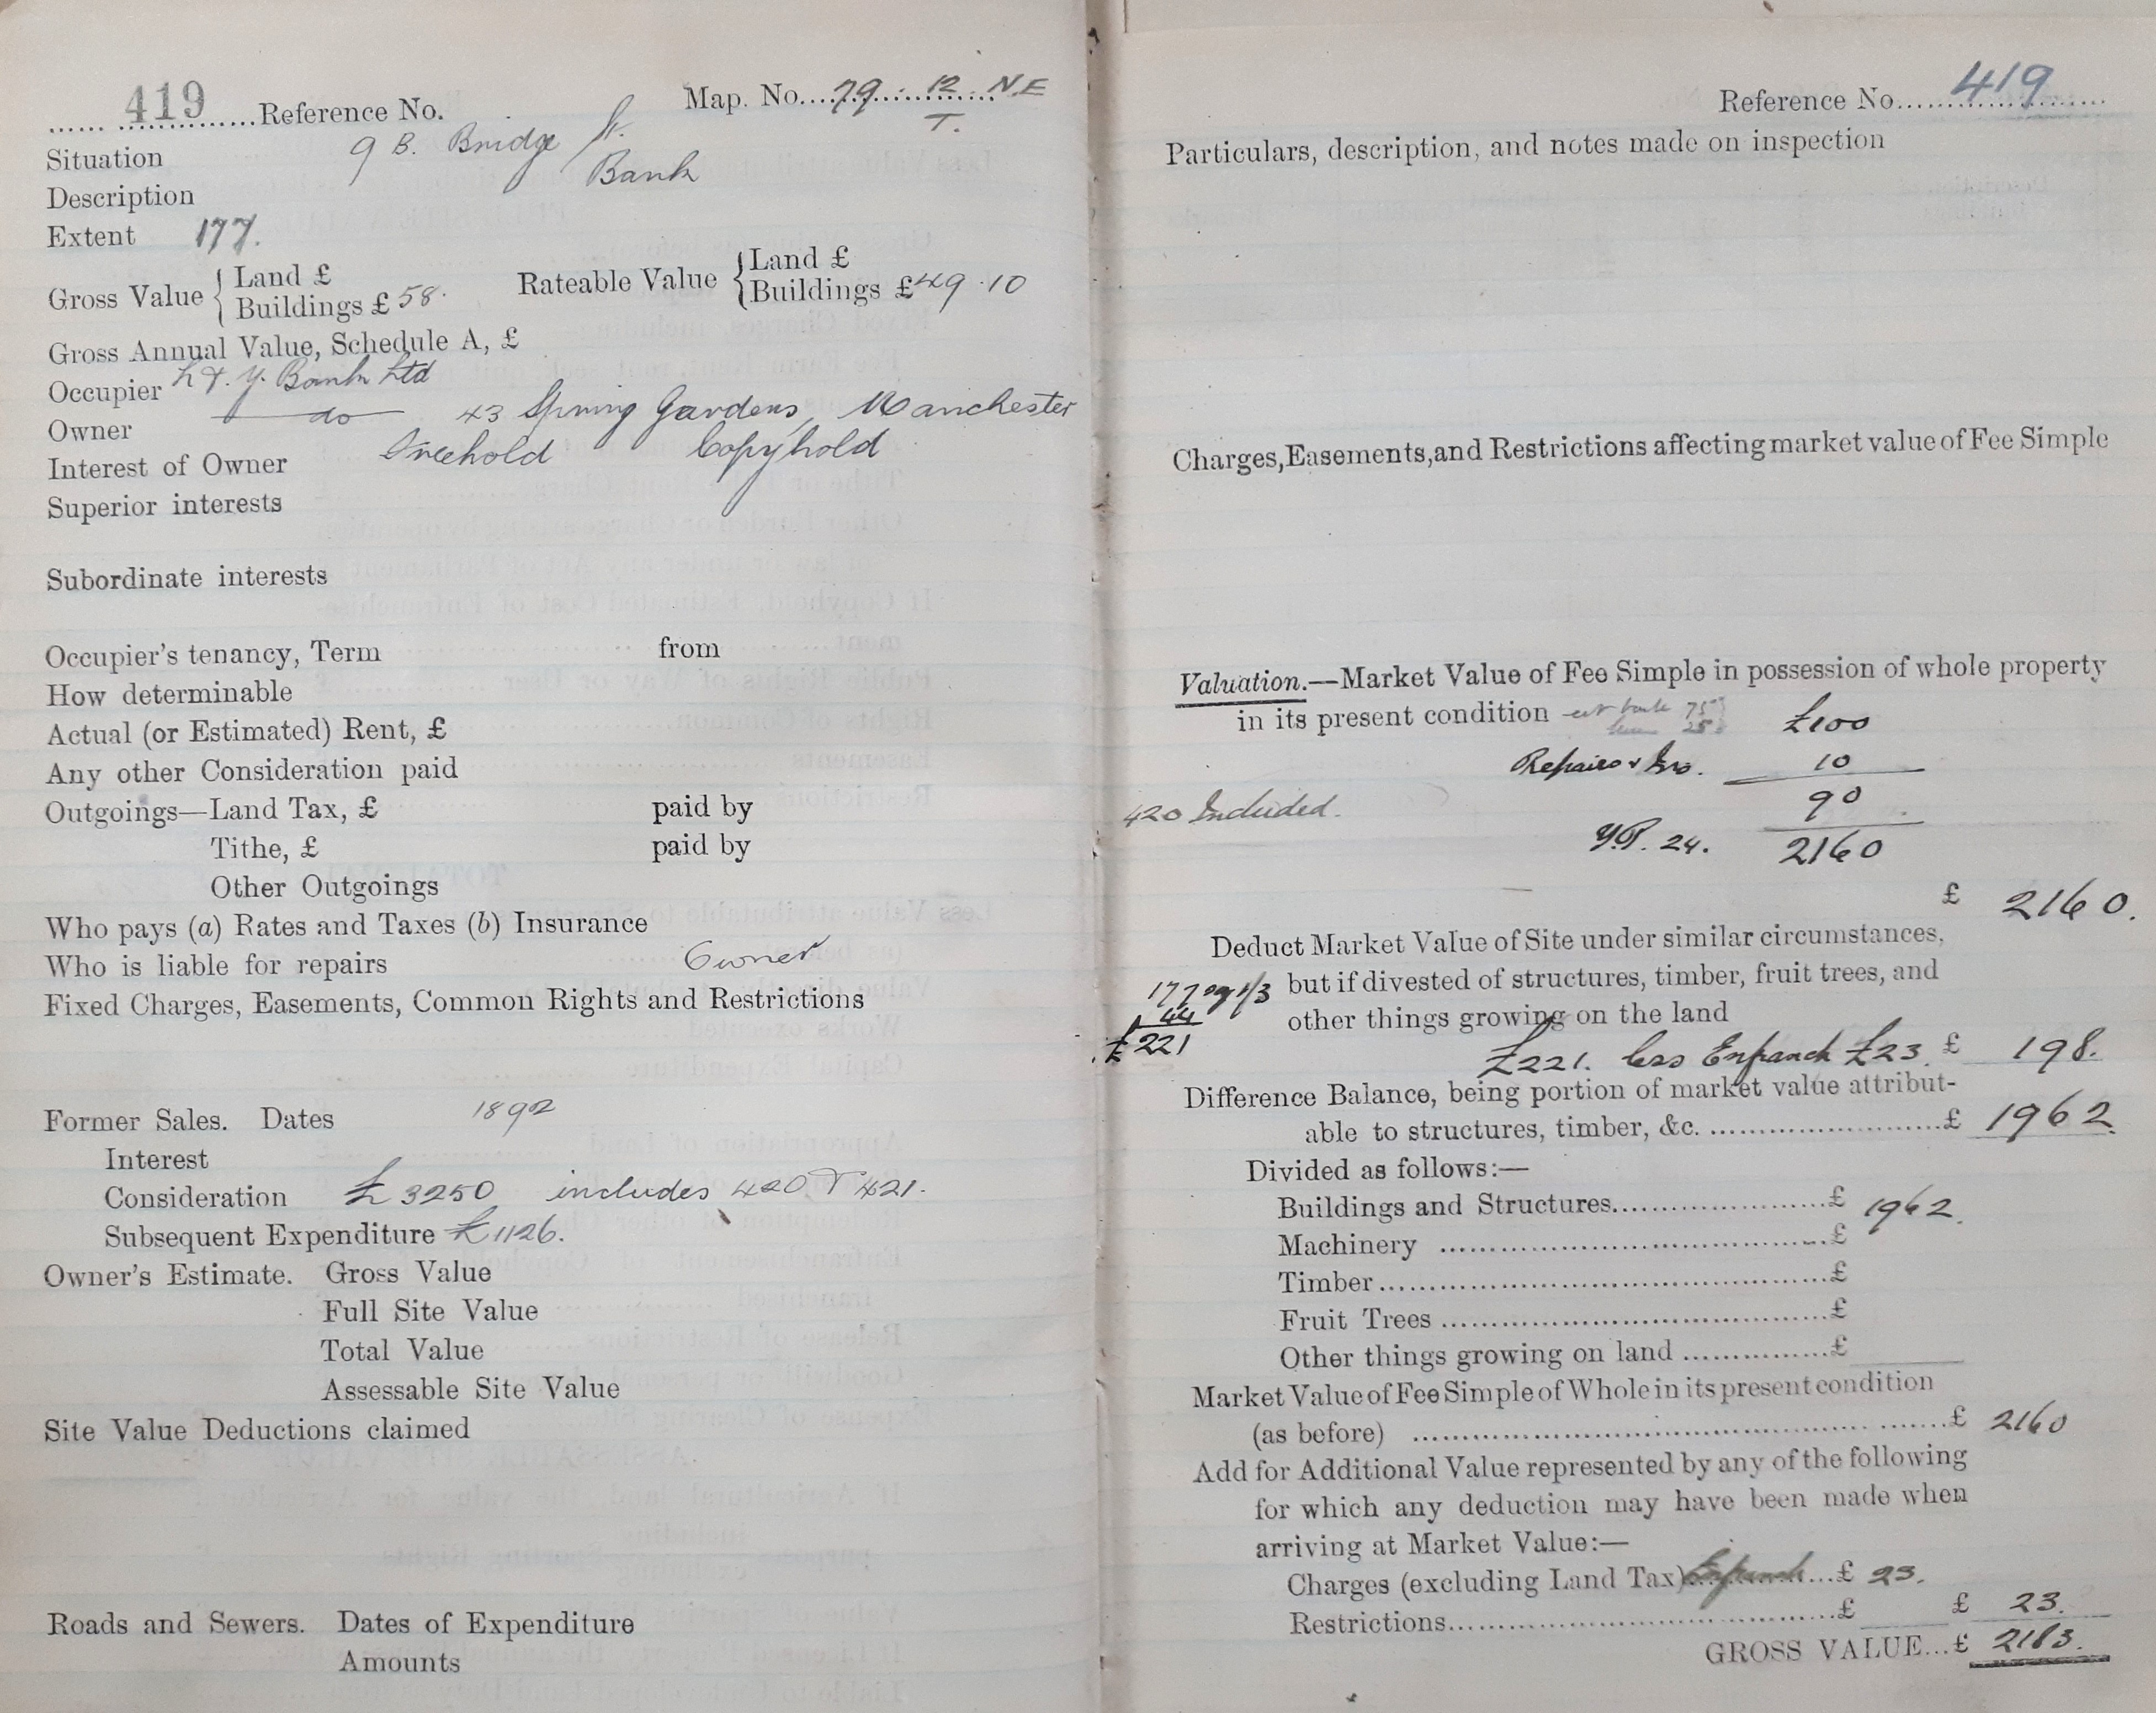 419 Reference No. Map. No. 79. 12 N.E
T.
Situation 9 B. Bridge St.
Description Bank
Extent 177.
Gross Value { Land £ Rateable Value { Land £
Buildings £ 58. Buildings £ 49.10
Gross Annual Value, Schedule A, £
Occupier L & Y. Bank Ltd
Owner do 43 Spring Gardens, Manchester
Interest of Owner Freehold Copyhold
Superior interests
Subordinate interests
Occupier's tenancy, Term from
How determinable
Actual (or Estimated) Rent, £
Any other Consideration paid
Outgoings—Land Tax, £ paid by
Tithe, £ paid by
Other Outgoings
Who pays (a) Rates and Taxes (b) Insurance
Who is liable for repairs Owner
Fixed Charges, Easements, Common Rights and Restrictions
Former Sales. Dates 1892
Interest
Consideration £3250 includes 420 & 421.
Subsequent Expenditure £1126.
Owner's Estimate. Gross Value
Full Site Value
Total Value
Assessable Site Value
Site Value Deductions claimed
Roads and Sewers. Dates of Expenditure
Amounts
Reference No. 419
Particulars, description, and notes made on inspection
Charges, Easements, and Restrictions affecting market value of Fee Simple
Valuation.—Market Value of Fee Simple in possession of whole property
in its present condition est bank 75 £100
25
Repairs & Ins. 10
420 Included. 90
Y.P. 24. 2160
£ 2160.
Deduct Market Value of Site under similar circumstances,
177 @ 1/3 but if divested of structures, timber, fruit trees, and
44 other things growing on the land
£221 £221. less Enfranch £23 £ 198.
Difference Balance, being portion of market value attribut-
able to structures, timber, &c. £ 1962.
Divided as follows:—
Buildings and Structures £ 1962.
Machinery £
Timber £
Fruit Trees £
Other things growing on land £
Market Value of Fee Simple of Whole in its present condition
(as before) £ 2160
Add for Additional Value represented by any of the following
for which any deduction may have been made when
arriving at Market Value:—
Charges (excluding Land Tax) Enfranch £ 23.
Restrictions £ £ 23.
GROSS VALUE...£ 2183.